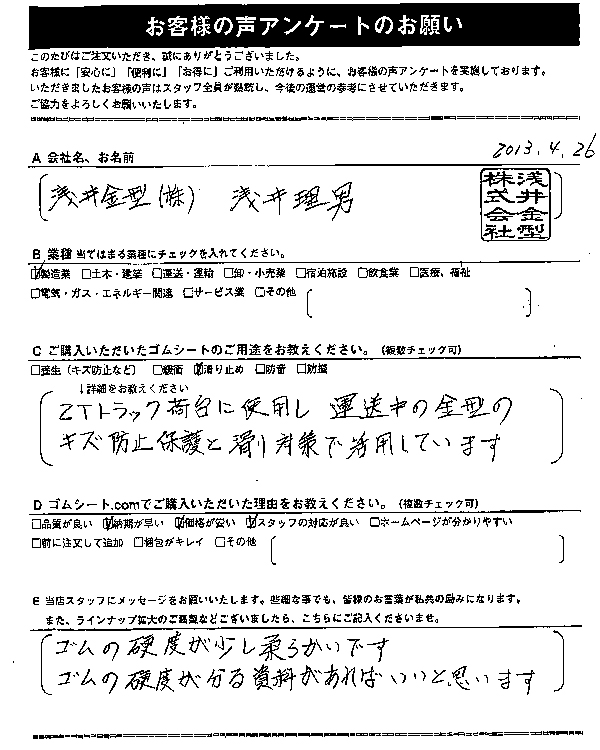 お客様の声アンケートのお願い
このたびはご注文いただき、誠にありがとうございました。
お客様に「安心に」「便利に」「お得に」ご利用いただけるように、お客様の声アンケートを実施しております。
いただきましたお客様の声はスタッフ全員が拝読し、今後の運営の参考にさせていただきます。
ご協力をよろしくお願いいたします。
2013.4.26
A 会社名、お名前
浅井金型(株) 浅井理男
浅井金型株式会社
B 業種 当てはまる業種にチェックを入れてください。
☑製造業 □土木・建築 □運送・運輸 □卸・小売業 □宿泊施設 □飲食業 □医療、福祉
□電気・ガス・エネルギー関連 □サービス業 □その他
C ご購入いただいたゴムシートのご用途をお教えください。(複数チェック可)
□養生(キズ防止など) □緩衝 ☑滑り止め □防音 □防振
↓詳細をお教えください
2Tトラック荷台に使用し 運送中の金型の
キズ防止保護と滑り対策で活用しています
D ゴムシート.comでご購入いただいた理由をお教えください。(複数チェック可)
□品質が良い ☑納期が早い ☑価格が安い ☑スタッフの対応が良い □ホームページが分かりやすい
□前に注文して追加 □梱包がキレイ □その他
E 当店スタッフにメッセージをお願いいたします。些細な事でも、皆様のお言葉が私共の励みになります。
また、ラインナップ拡大のご要望などございましたら、こちらにご記入くださいませ。
ゴムの硬度が少し柔らかいです
ゴムの硬度が分る資料があればいいと思います